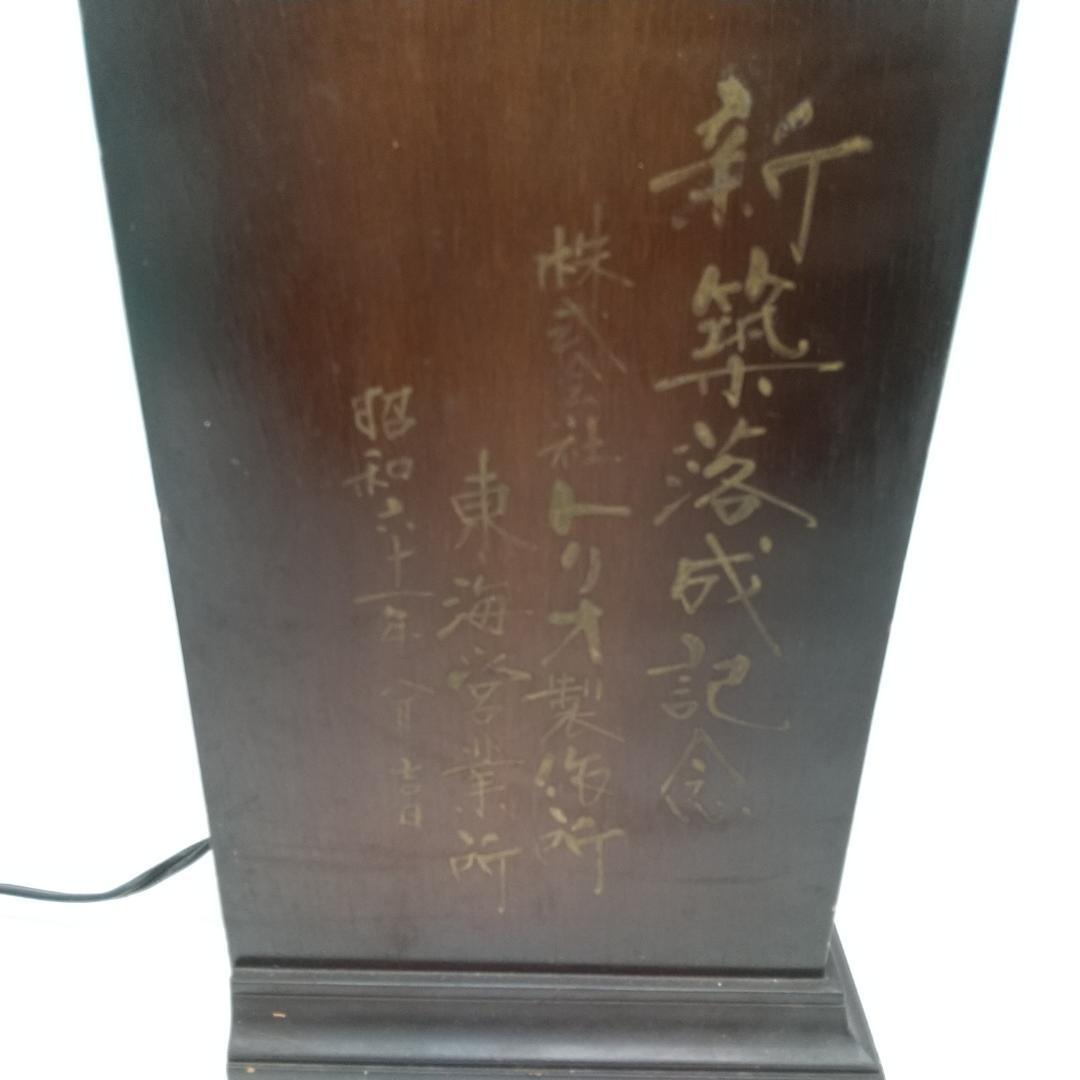 新築落成記念
株式会社トリオ製作所
東海営業所
昭和六十一年 八月 七日